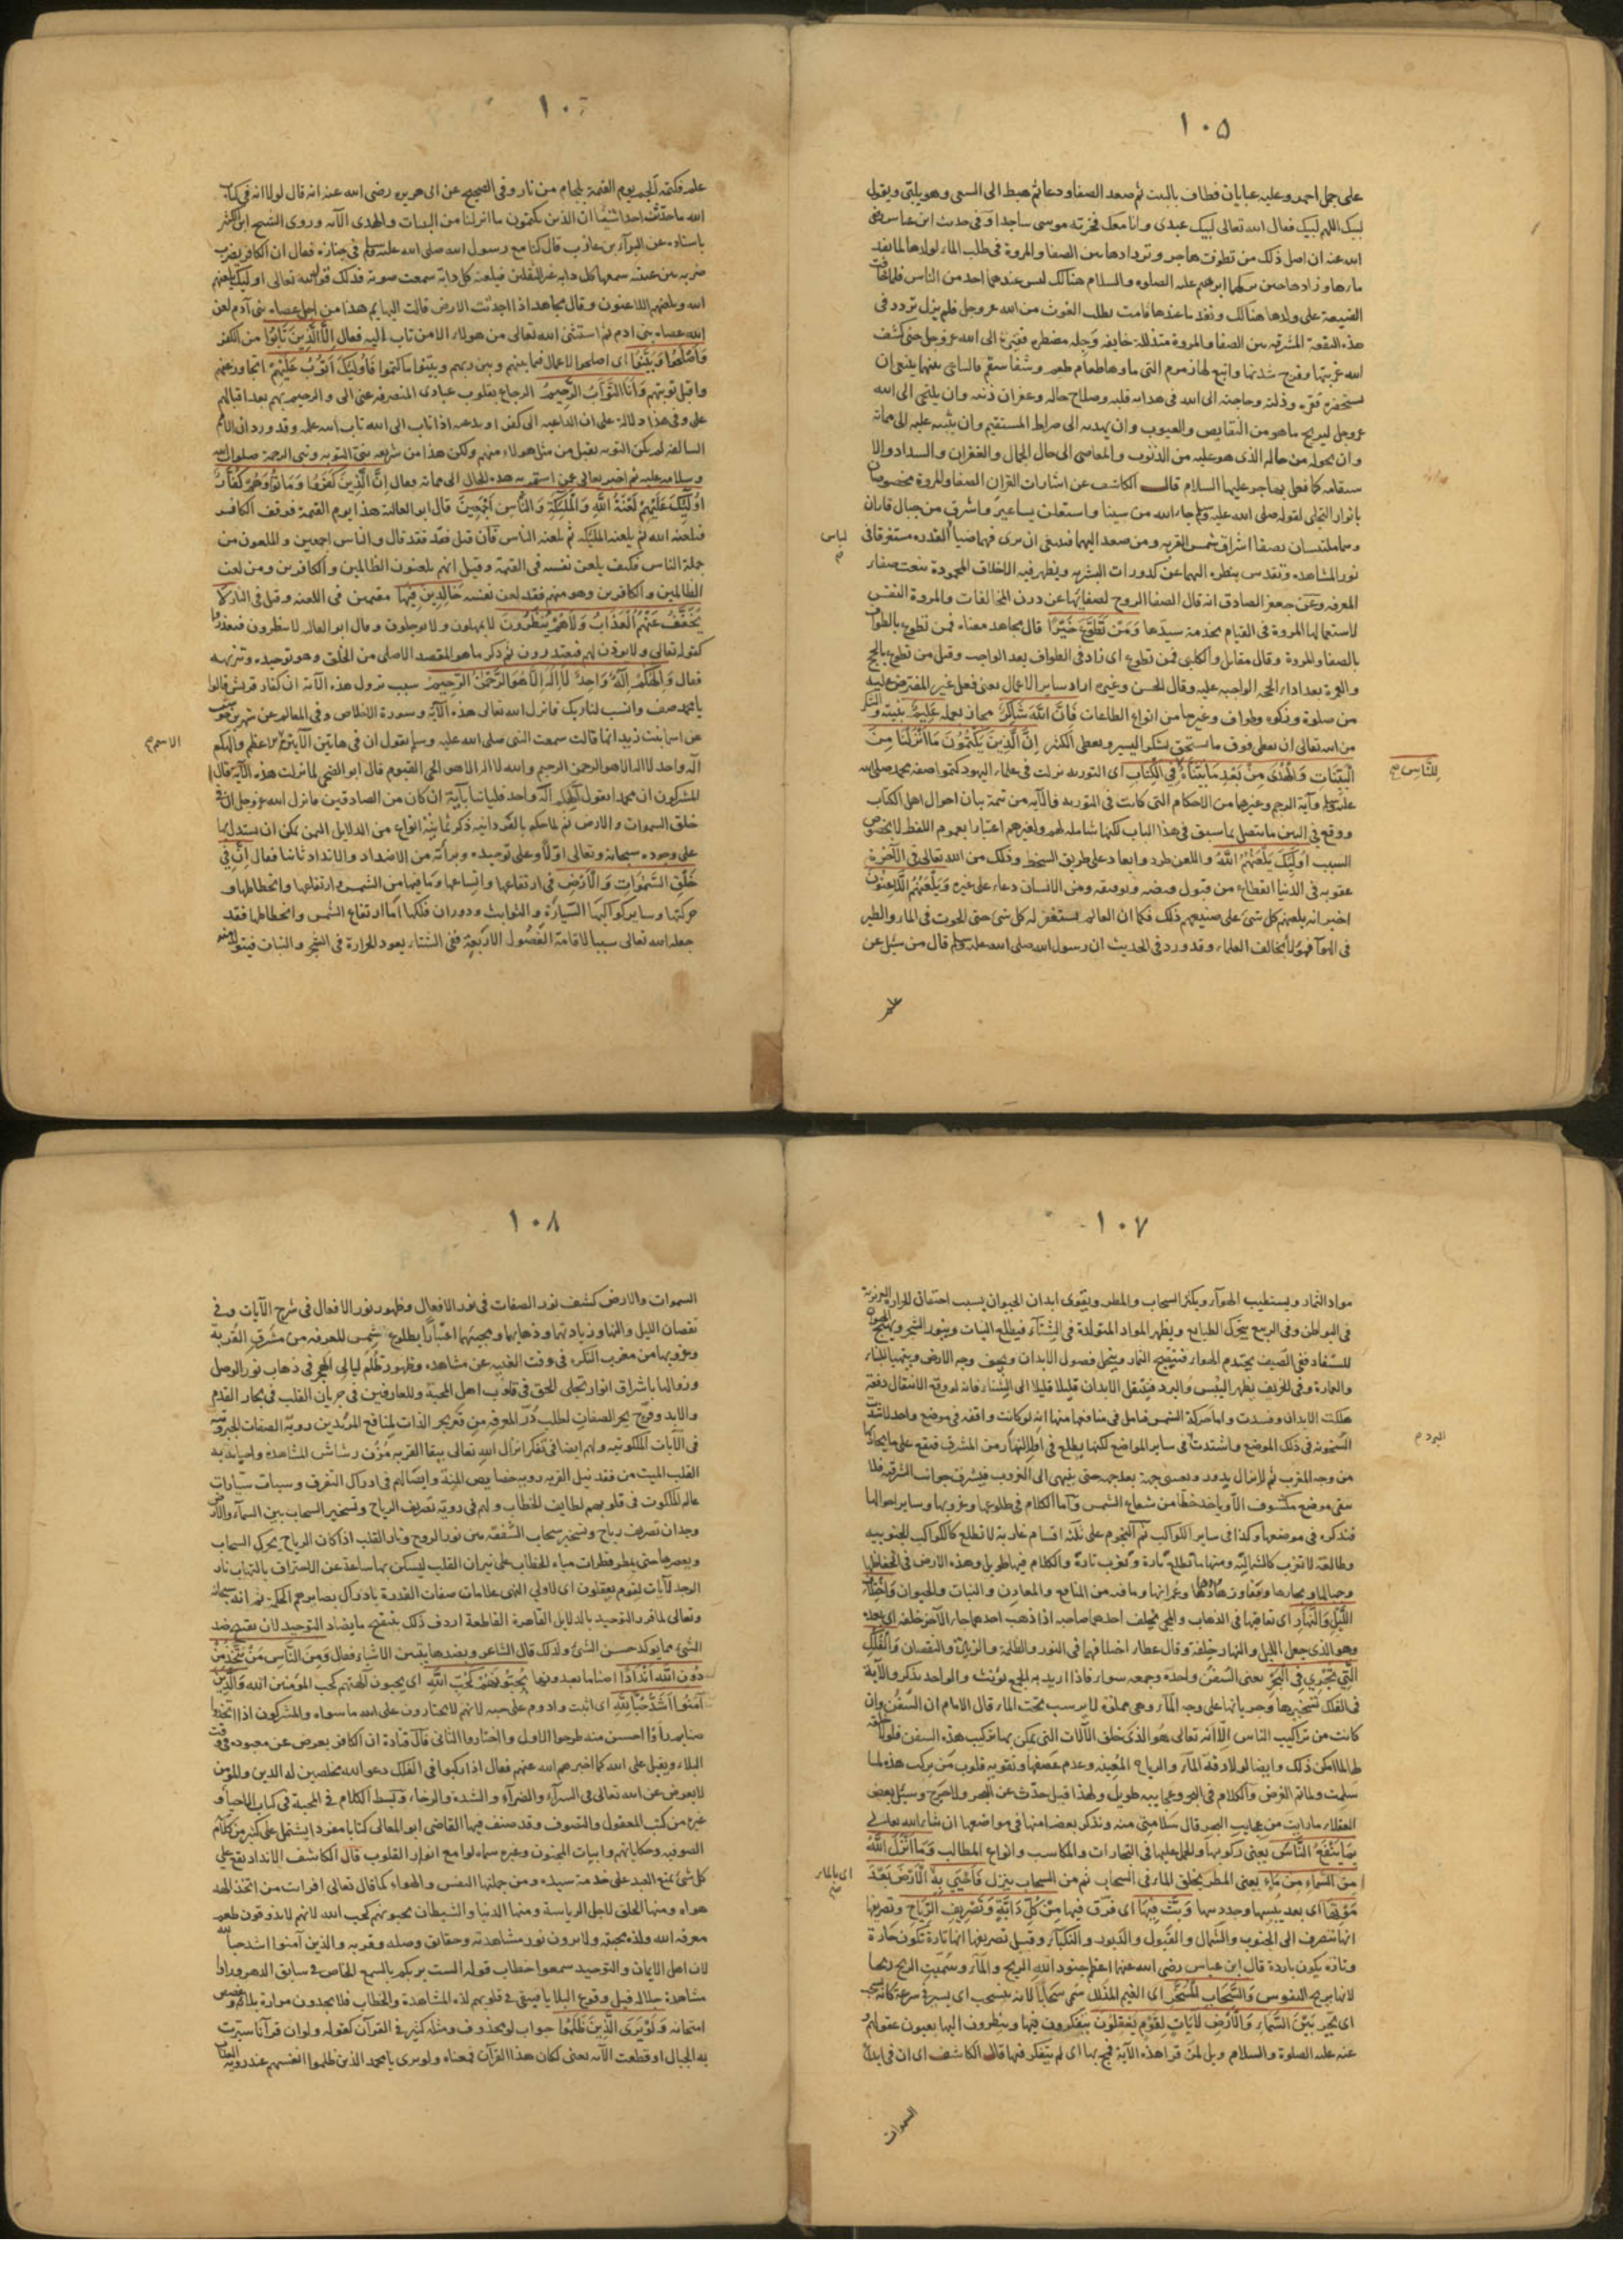 ١٠٥
على جمل احمر وعليه عبايان فطاف بالبيت ثم صعد الصفا ودعا ثم هبط الى السعى وهو يلبى ويقول
لبيك اللهم لبيك فقال الله تعالى لبيك عبدى وانا معك فخر موسى ساجدا وفى حديث ابن عباس رضى
الله عنه ان اصل ذلك من تطوف هاجر وتردادها بين الصفا والمروة فى طلب الماء لولدها لما نفد
ماءها وزادها حين تركهما ابرهيم عليه الصلوه والسلام هنالك ليس عندهما احد من الناس فلما خافت
الضيعة على ولدها هنالك ونفد ما عندها قامت تطلب الغوث من الله عز وجل فلم يزل تردد فى
هذه البقعة المشرفه بين الصفا والمروة متذللة خايفه وجله مضطره فقيرة الى الله عز وجل حتى كشف
الله غربتها وفرج شدتها وانبع لها زمزم التى ماءها طعام طعم وشفا سقم فالساعى بينهما ينبغى ان
يستحضر فقره وذلته وحاجته الى الله فى هدايه قلبه وصلاح حاله وغفران ذنبه وان يلتجى الى الله
عز وجل ليزيح ما هو من النقايص والعيوب وان يهديه الى صراط المستقيم وان يثبته عليه الى مماته
وان يحوله من حاله الذى هو عليه من الذنوب والمعاصى الى حال الكمال والغفران والسداد والا
ستقامه كما فعل بهاجر عليها السلام قال الكاشف عن اشارات القران الصفا والمروة مخصوصان
بانوار التجلى لقوله صلى الله عليه وسلم جاء الله من سينا واستعلن بساعير واشرق من جبال فاران
وهما ملتبسان بصفا اشراق شمس القربه ومن صعد اليهما فينبغى ان يرى فيهما ضيا القدره مستغرقا فى
لباس
نور المشاهده وتقدس بنظره اليهما عن كدورات البشريه ويظهر فيه الاخلاق المحمودة بنعت صفار
المعرفه وعن جعفر الصادق انه قال الصفا الروح لصفايها عن درن المخالفات والمروة النفس
لاستعمالها المروة فى القيام بخدمة سيدها وَمَنْ تَطَوَّعَ خَيْرًا قال مجاهد معناه فمن تطوع بالطواف
بالصفا والمروة وقال مقاتل والكلبى فمن تطوع اى زاد فى الطواف بعد الواجب وقيل من تطوع بالحج
والعمرة بعد اداء الحجه الواجبه عليه وقال الحسن وغيره اراد ساير الاعمال يعنى فعل غير المفترض عليه
من صلوة وزكوه وطواف وغيرها من انواع الطاعات فَإِنَّ اللَّهَ شَاكِرٌ مجاز بعمله عَلِيمٌ بنيته والشكر
من الله تعالى ان يعطى فوق ما يستحق يشكر اليسير ويعطى الكثير إِنَّ الَّذِينَ يَكْتُمُونَ مَا أَنْزَلْنَا مِنَ
الْبَيِّنَاتِ وَالْهُدَى مِنْ بَعْدِ مَا بَيَّنَّاهُ فِي الْكِتَابِ اى التوريه نزلت فى علماء اليهود كتموا صفة محمد صلى الله
لِلنَّاسِ صح
عليه وسلم وآية الرجم وغيرهما من الاحكام التى كانت فى التوريه فالآيه من تتمة بيان احوال اهل الكتاب
ووقع فى البين ما يتصل بما سبق فى هذا الباب لكنها شامله لهم ولغيرهم اعتبارا بعموم اللفظ لا بخصوص
السبب أُولَئِكَ يَلْعَنُهُمُ اللَّهُ واللعن طرد وابعاد على طريق السخط وذلك من الله تعالى فى الآخرة
عقوبه فى الدنيا انقطاع من قبول فيضه وتوفيقه ومن الانسان دعاء على غيره وَيَلْعَنُهُمُ اللَّاعِنُونَ
اخبر انه يلعنهم كل شئ على صنيعهم ذلك فكما ان العالم يستغفر له كل شئ حتى الحوت فى الماء والطير
فى الهوآ فهؤلاء بخلاف العلماء وقد ورد فى الحديث ان رسول الله صلى الله عليه وسلم قال من سئل عن
علم
١٠٦
علم فكتمه الجم يوم القيمة بلجام من نار وفى الصحيح عن ابى هريره رضى الله عنه انه قال لولا انه فى كتاب
الله ما حدثت احدا شيئا ان الذين يكتمون ما انزلنا من البينات والهدى الآيه وروى الشيخ ابن كثير
باسناده عن البرآء بن عازب قال كنا مع رسول الله صلى الله عليه وسلم فى جنازه فقال ان الكافر يضرب
ضربه بين عينيه سمعها كل دابه غير الثقلين فيلعنه كل دابة سمعت صوته فذلك قول الله تعالى اولئك يلعنهم
الله ويلعنهم اللاعنون وقال مجاهد اذا اجدبت الارض قالت البهايم هذا من اجل عصاه بنى آدم لعن
الله عصاه بنى ادم ثم استثنى الله تعالى من هولاء الا من تاب اليه فقال إِلَّا الَّذِينَ تَابُوا من الكفر
وَأَصْلَحُوا وَبَيَّنُوا اى اصلحوا الاعمال فيما بينهم وبين ربهم وبينوا ما كتموا فَأُولَئِكَ أَتُوبُ عَلَيْهِمْ اتجاوز عنهم
واقبل توبتهم وَأَنَا التَّوَّابُ الرَّحِيمُ الرجاع بقلوب عبادى المنصرفه عنى الى والرحيم بهم بعد اقبالهم
على وفى هذا دلالة على ان الداعيه الى كفر او بدعه اذا تاب الى الله تاب الله عليه وقد ورد ان الامم
السالفه لم يكن التوبه يقبل من مثل هولاء منهم ولكن هذا من شريعه نبى التوبه ونبى الرحمة صلوات الله
وسلامه عليه ثم اخبر تعالى عمن استمر به هذه الحال الى مماته فقال إِنَّ الَّذِينَ كَفَرُوا وَمَاتُوا وَهُمْ كُفَّارٌ
أُولَئِكَ عَلَيْهِمْ لَعْنَةُ اللَّهِ وَالْمَلَئِكَةِ وَالنَّاسِ أَجْمَعِينَ قال ابو العاليه هذا يوم القيمة فوقف الكافر
فيلعنه الله ثم يلعنه الملئكه ثم يلعنه الناس فان قيل فقد قال والناس اجمعين والملعون من
جملة الناس فكيف يلعن نفسه فى القيمة وقيل انهم يلعنون الظالمين والكافرين ومن لعن
الظالمين والكافرين وهو منهم فقد لعن نفسه خَالِدِينَ فِيهَا مقيمين فى اللعنه وقيل فى النار لَا
يُخَفَّفُ عَنْهُمُ الْعَذَابُ وَلَا هُمْ يُنْظَرُونَ لا يمهلون ولا يوجلون وقال ابو العاليه لا ينظرون فيعتذروا
كقوله تعالى ولا يوذن لهم فيعتذرون ثم ذكر ما هو المقصد الاصلى من الخلق وهو توحيده وتنزيهه
فقال وَإِلَهُكُمْ إِلَهٌ وَاحِدٌ لَا إِلَهَ إِلَّا هُوَ الرَّحْمَنُ الرَّحِيمُ سبب نزول هذه الآيه ان كفار قريش قالوا
يا محمد صف وانسب لنا ربك فانزل الله تعالى هذه الآية وسورة الاخلاص وفى المعالم عن شهر بن حوشب
عن اسما بنت زيد انها قالت سمعت النبى صلى الله عليه وسلم يقول ان فى هاتين الآيتين اعظم والهكم
الاسم م
اله واحد لا اله الا هو الرحمن الرحيم والله لا اله الا هو الحى القيوم قال ابو الضحى لما نزلت هذه الآية قال
المشركون ان محمدا يقول الهكم اله واحد فلياتنا بآية ان كان من الصادقين فانزل الله عز وجل ان فى
خلق السموات والارض ثم لما حكم بالفردانيه ذكر ثمانية انواع من الدلايل التى يمكن ان يستدل بها
على وجوده سبحانه وتعالى اولا وعلى توحيده وبرآته من الاضداد والانداد ثانيا فقال إِنَّ فِي
خَلْقِ السَّمَوَاتِ وَالْأَرْضِ فى ارتفاعها واتساعها وما فيها من الشمس وارتفاعها وانحطاطها و
حركتها وساير كواكبها السيارة والثوابت ودوران فلكها اما ارتفاع الشمس وانحطاطها فقد
جعله الله تعالى سببا لاقامة الفصول الاربعة ففى الشتاء يعود الحرارة فى الشجر والنبات فيتولد منه
١٠٧
مواد الثمار ويستطيب الهوآء ويكثر السحاب والمطر ويقوى ابدان الحيوان بسبب احتقان الحرارة الغريزية
فى البواطن وفى الربيع يتحرك الطبايع ويظهر المواد المتولدة فى الشتآء فيطلع النبات وينور الشجر ويهيج الحيوان
للسفاد ففى الصيف يحتدم الهواء فينضج الثمار ويتحلل فصول الابدان ويجف وجه الارض ويتهيا للبناء
والعمارة وفى الخريف يظهر اليبس والبرد فتنتقل الابدان قليلا قليلا الى الشتاء فانه لو وقع الانتقال دفعة
هلكت الابدان وفسدت واما حركة الشمس فتامل فى منافعها منها انه لو كانت واقفه فى موضع واحد لاشتدت
السخونة فى ذلك الموضع واشتدت فى ساير المواضع لكنها يطلع فى اول النهار من المشرق فيقع على ما يحاذيها
البرد م
من وجه المغرب ثم لا يزال يدور ويغشى جهة بعد جهه حتى ينتهى الى الغروب فيشرق جوانب الشرقيه فلا
يبقى موضع مكشوف الا وياخذ حظا من شعاع الشمس واما الكلام فى طلوعها وغروبها وساير احوالها
فنذكره فى موضعها وكذا فى ساير الكواكب ثم النجوم على ثلثه اقسام غاربة لا تطلع كالكواكب الجنوبيه
وطالعة لا تغرب كالشماليه ومنها ما تطلع تارة وتغرب تارة والكلام فيها طويل وهذه الارض فى انخفاضها
وجبالها وبحارها وقفارها ووهادها وعمرانها وما فيه من المنافع والمعادن والنبات والحيوان وَاخْتِلَافِ
اللَّيْلِ وَالنَّهَارِ اى تعاقبهما فى الذهاب والمجى يخلف احدهما صاحبه اذا ذهب احدهما جاء الآخر خلفه اى بعده
وهو الذى جعل الليل والنهار خلفة وقال عطاء اختلافهما فى النور والظلمة والزيادة والنقصان وَالْفُلْكِ
الَّتِي تَجْرِي فِي الْبَحْرِ يعنى السفن واحده وجمعه سواء فاذا اريد به الجمع يونث والواحد يذكر والآية
فى الفلك تسخيرها وجريانها على وجه المآء وهى مملوة لا يرسب تحت الماء قال الامام ان السفن وان
كانت من تراكيب الناس الا انه تعالى هو الذى خلق الآلات التى يمكن بها تركيب هذه السفن فلولا خلقه
لها لما امكن ذلك وايضا لولا رقة المآء والرياح المعينه وعدم عصفها وتقويه قلوب من يركب هذه لما
سلمت ولما تم الغرض والكلام فى البحر وعجايبه طويل ولهذا قيل حدث عن البحر ولا حرج وسئل بعض
العقلاء ما رايت من عجايب البحر قال سلامتى منه ونذكر بعضا منها فى مواضعها ان شاء الله تعالى
بِمَا يَنْفَعُ النَّاسَ يعنى ركوبها والحمل عليها فى التجارات والمكاسب وانواع المطالب وَمَا أَنْزَلَ اللَّهُ
مِنَ السَّمَاءِ مِنْ مَاءٍ يعنى المطر يخلق الماء فى السحاب ثم من السحاب ينزل فَأَحْيَى بِهِ الْأَرْضَ بَعْدَ
اى بالماء صح
مَوْتِهَا اى بعد يبسها وجدوبها وَبَثَّ فِيهَا اى فرق فيها مِنْ كُلِّ دَابَّةٍ وَتَصْرِيفِ الرِّيَاحِ وتصريفها
انها تتصرف الى الجنوب والشمال والقبول والدبور والنكبآء وقيل تصريفها انها تارة تكون حارة
وتارة يكون باردة قال ابن عباس رضى الله عنهما اعظم جنود الله الريح والمآء وسميت الريح ريحا
لانها يريح النفوس وَالسَّحَابِ الْمُسَخَّرِ اى الغيم المذلل سمى سحابا لانه ينسحب اى يسير فى سرعة كانه يسحب
اى يجر بَيْنَ السَّمَاءِ وَالْأَرْضِ لَآيَاتٍ لِقَوْمٍ يَعْقِلُونَ يتفكرون فيها وينظرون اليها بعيون عقولهم و
عنه عليه الصلوة والسلام ويل لمن قرا هذه الآية فمج بها اى لم يتفكر فيها قال الكاشف اى ان فى ابداع
السموات
١٠٨
السموات والارض كشف نور الصفات فى نور الافعال وظهور نور الافعال فى شرح الآيات وفى
نقصان الليل والنهار وزيادتها وذهابها ومجيئهما اعتبارا بطلوع شمس المعرفه من مشرق القربة
وغروبها من مغرب النكره فى وقت الغيبه عن مشاهده وظهور ظلم ليالى الهجر فى ذهاب نور الوصل
وزوالها باشراق انوار تجلى الحق فى قلوب اهل المحبة وللعارفين فى جريان القلب فى بحار القدم
والابد وفوج بحر الصفات لطلب در المعرفه من قعر بحر الذات لمنافع المريدين روية الصفات الجبروتيه
فى الآيات الملكوتيه ولهم ايضا فى تفكر انزال الله تعالى ببقا القربه مزن رشاش المشاهدة واحيائه به
القلب الميت من فقد نيل القربه وبيخصايص المنة وايضا لهم فى ادراك التفرق وسبات سيارات
عالم الملكوت فى قلوبهم لطايف الخطاب ولهم فى روية تصريف الرياح وتسخير السحاب بين السمآء والارض
وجدان تصريف رياح وتسخير سحاب الشفقه بين نور الروح ونار القلب اذا كان الرياح يحرك السحاب
ويعصرها حتى يمطر قطرات مياه الخطاب على نيران القلب ليسكن بها ساعة عن الاحتراق بالتهاب نار
الوجد لآيات لقوم يعقلون اى لاولى النهى علامات صفات القدرة بادراك بصايرهم الحكمه ثم انه سبحانه
وتعالى لما قرر التوحيد بالدلايل القاهرة القاطعة اردف ذلك بتقبيح ما يضاد التوحيد لان تقبيح ضد
الشئ مما يوكد حسن الشئ ولذلك قال الشاعر وبضدها يتبين الاشياء فقال وَمِنَ النَّاسِ مَنْ يَتَّخِذُ مِنْ
دُونِ اللَّهِ أَنْدَادًا اصناما يعبدونها يُحِبُّونَهُمْ كَحُبِّ اللَّهِ اى يحبون آلهتهم كحب المؤمنين الله وَالَّذِينَ
آمَنُوا أَشَدُّ حُبًّا لِلَّهِ اى اثبت وادوم على حبه لانهم لا يختارون على الله ما سواه والمشركون اذا اتخذوا
صنما ثم رأوا احسن منه طرحوا الاول واختاروا الثانى قال قتادة ان الكافر يعرض عن معبوده فى وقت
البلاء ويقبل على الله كما اخبر الله عنهم فقال اذا ركبوا فى الفلك دعوا الله مخلصين له الدين والمؤمن
لا يعرض عن الله تعالى فى السرآء والضرآء والشدة والرخاء وبسط الكلام فى المحبة فى كتاب الاحيآء و
غيره من كتب المعقول والتصوف وقد صنف فيها القاضى ابو المعالى كتابا مفردا يشتمل على كثير من كلام
الصوفيه وحكاياتهم وابيات المجنون وغيره سماه لوامع انوار القلوب قال الكاشف الانداد يقع على
كل شئ يمنع العبد على خدمة سيده ومن جملتها النفس والهواء كما قال تعالى افرايت من اتخذ الهه
هواه ومنها الخلق لاجل الرياسة ومنها الدنيا والشيطان يحبونهم كحب الله لانهم لا يذوقون طعم
معرفه الله ولذه محبته ولا يرون نور مشاهدته وحقايق وصله وقربه والذين آمنوا اشد حبا لله
لان اهل الايمان والتوحيد سمعوا خطاب قوله الست بربكم بالسمع الخاص فى سابق الدهر وراوا
مشاهدة جلاله قبل وقوع البلايا فبقى فى قلوبهم لذه المشاهدة والخطاب فلا يجدون مرارة بلائه و
امتحانه وَلَوْ يَرَى الَّذِينَ ظَلَمُوا جواب لو محذوف ومثله كثير فى القرآن كقوله ولو ان قرآنا سيرت
به الجبال او قطعت الآيه يعنى لكان هذا القرآن فمعناه ولو يرى يا محمد الذين ظلموا انفسهم عند روية العذاب